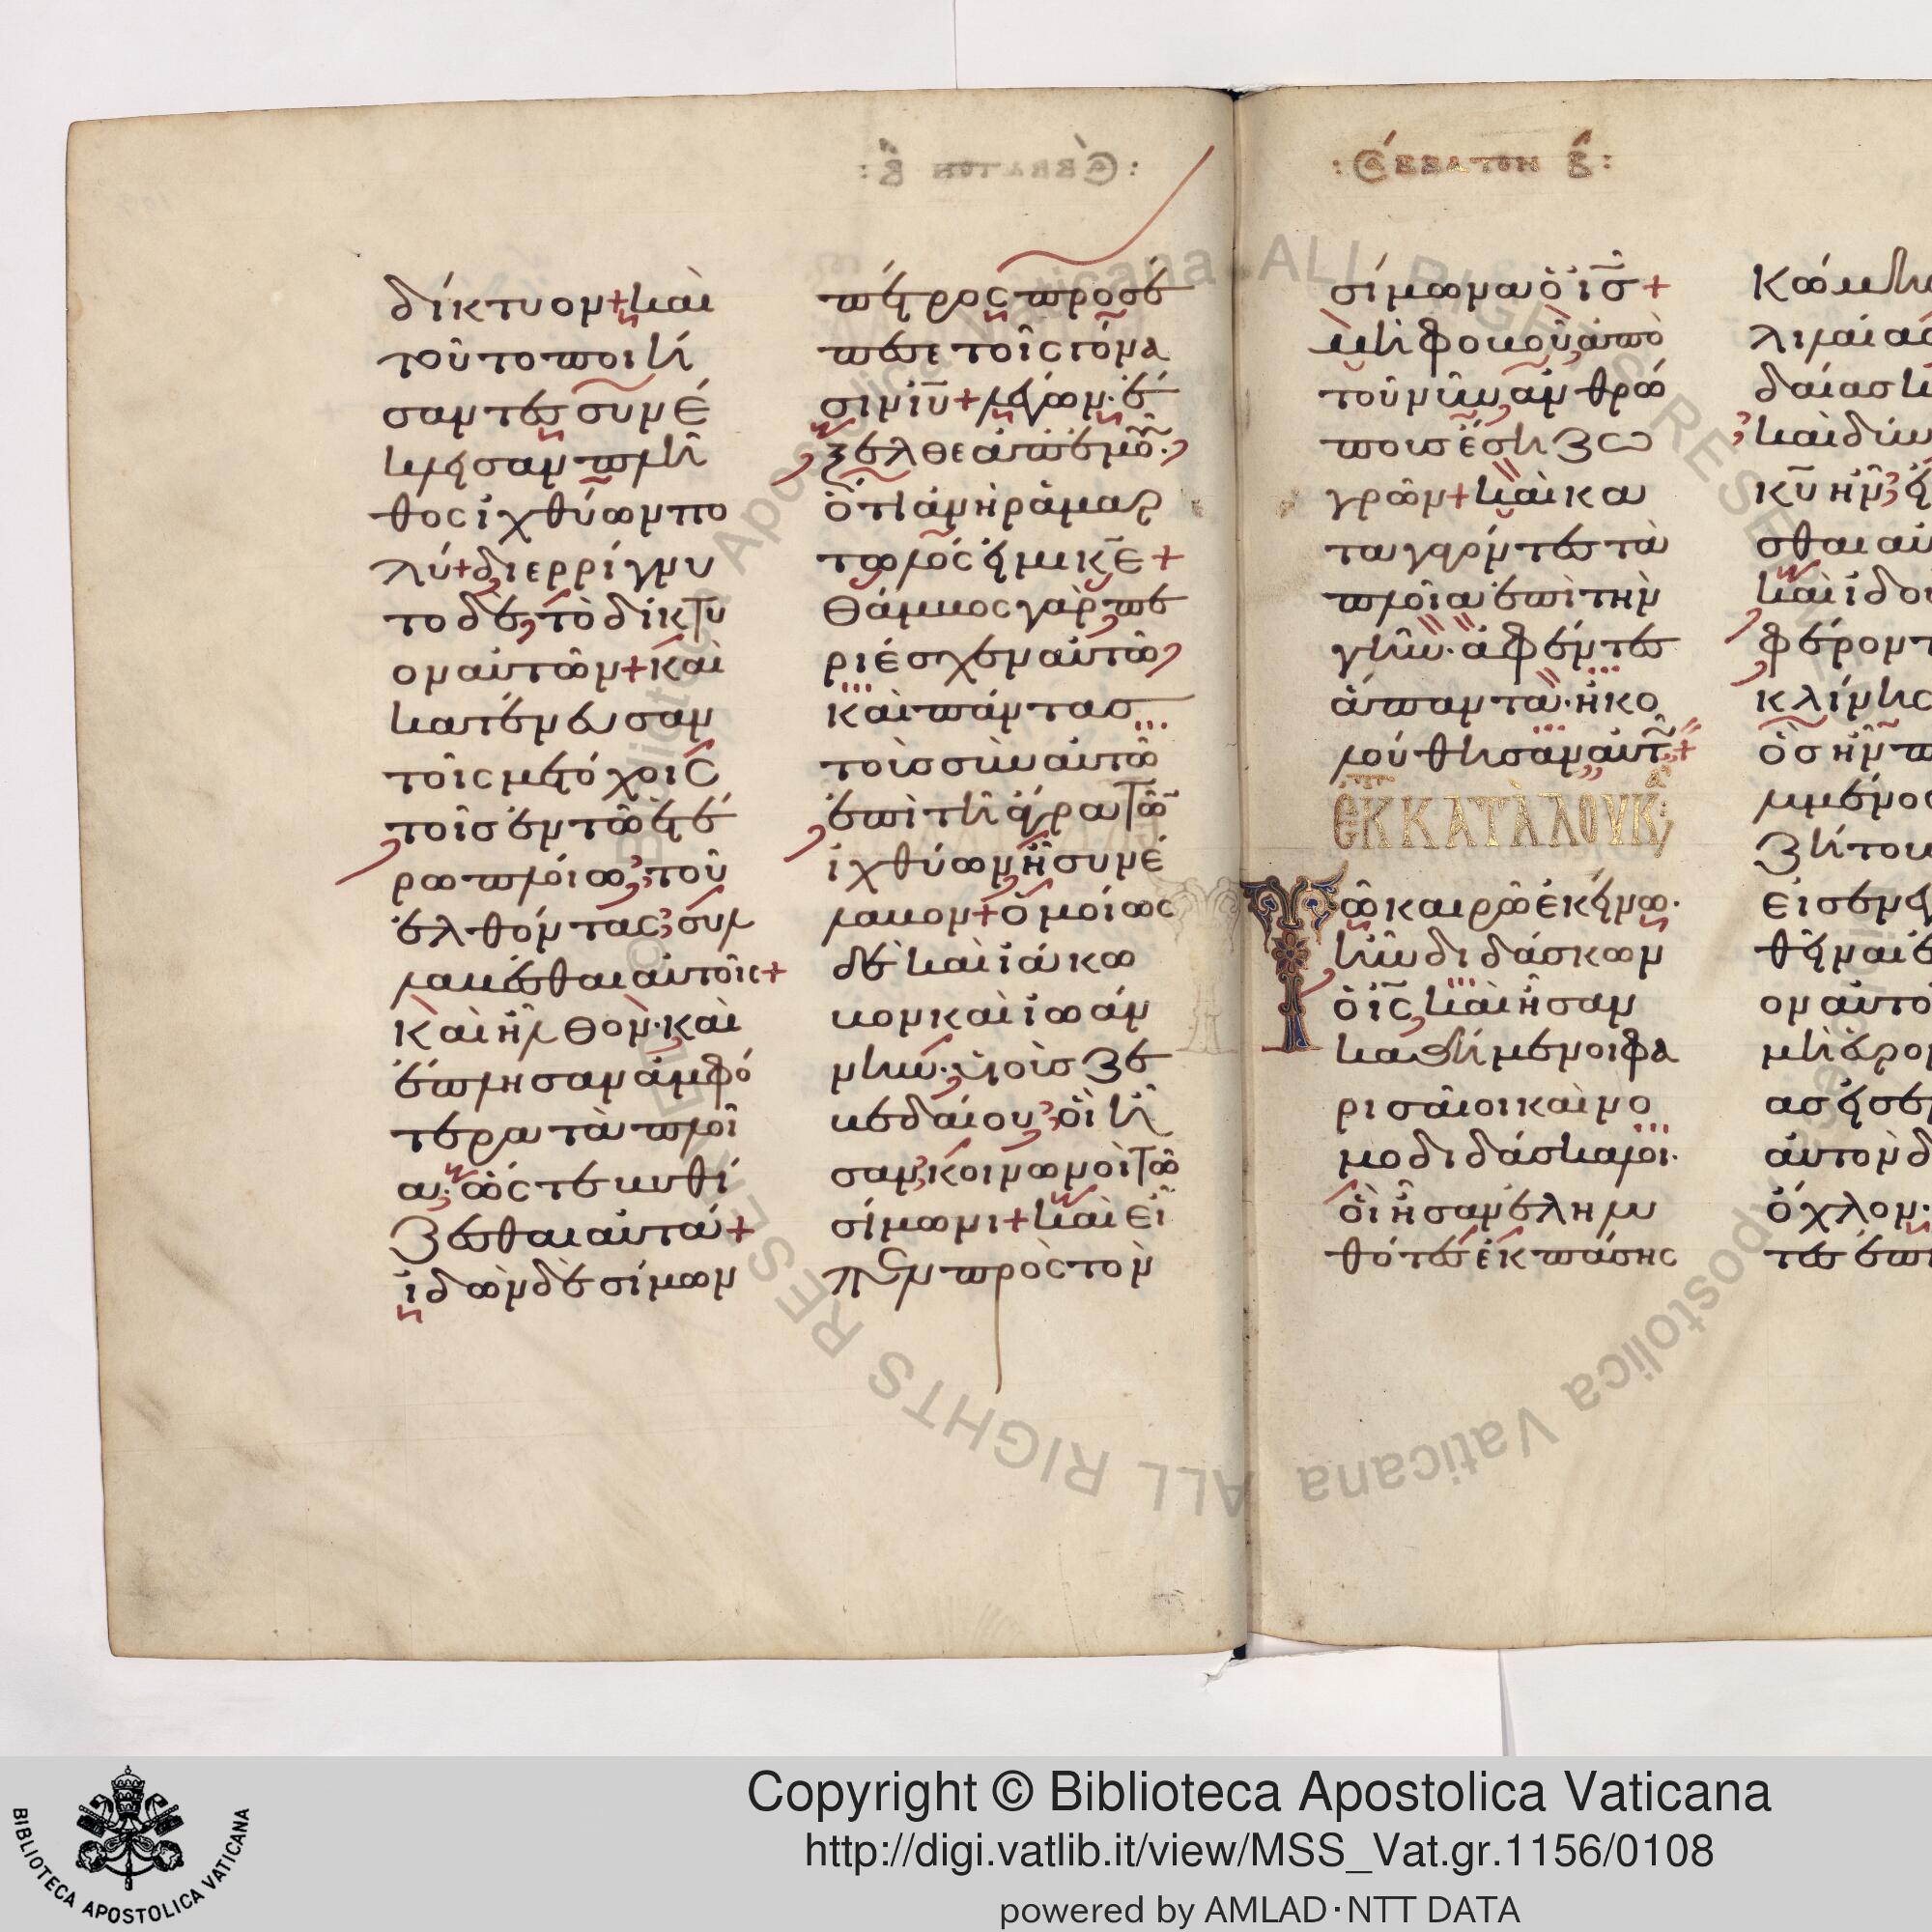 δίκτυον+και
τοῦτο ποιή
σαντες συνέ
κλεισαν πλῆ
θος ἰχθύων πο
λύ+διερρίγνυ
το δὲ, τὸ δίκτυ
ον αὐτῶν+καὶ
κατένευσαν
τοῖς μετόχοις
τοῖσ ἐν τῶ ἑτέ
ρω πλοίω, τοῦ
ἐλθόντας, συλ
λαβέσθαι αὐτοῖς+
Καὶ ἦλθον· καὶ
ἔπλησαν ἀμφό
τερα τὰ πλοῖ
α· ὥστε βυθί
ζεσθαι αὐτά+
ἰδὼν δὲ σίμων
πέτρος προσέ
πεσε τοῖς γόνα
σιν ιυ+λέγων· ἔ
ξελθε ἀπ' ἐμοῦ·
ὅτι ἀνὴρ ἁμαρ
τωλός εἰμι κε+
Θάμβος γὰρ πε
ριέσχεν αὐτῶ,
καὶ πάντασ
τοὺσ σὺν αὐτῶ
ἐπὶ τῆ ἄγρα τῶ
ἰχθύων, ἧ συνέ
λαβον+ὁμοίως
δὲ καὶ ἰάκω
βον καὶ ἰωάν
νην· υἱοὺσ ζε
βεδαίου, οἳ ἦ
σαν, κοινωνοὶ τῶ
σίμωνι+καὶ εἶ
πεν πρὸς τὸν
:Cάββάτον β:
σίμωνα ὁ ισ+
μὴ φοβοῦ ἀπὸ
τοῦ νῦν, ἀνθρώ
πουσ ἔση ζω
γρῶν+καὶ κα
ταγαγόντες τὰ
πλοῖα ἐπὶ τὴν
γῆν· ἀφέντες
ἅπαντα· ἠκο
λούθησαν αὐτῶ+
ἐκ κατὰ λουκᾶ:
Τῶ καιρῶ ἐκείνω·
ἦν διδάσκων
ὁ ις, καὶ ἦσαν
καθήμενοι φα
ρισαῖοι καὶ νο
μοδιδάσκαλοι·
οἳ ἦσαν ἐληλυ
θότες ἐκ πάσης
Κώμη
λιλαίας
δαίασ κ
καὶ δύν
κυ ἦν, εἰ
σθαι αὐ
καὶ ἰδοὺ
φέροντ
κλίνης
ὃσ ἦν π
λυμένος
ζήτου
εἰσενεγ
θεῖναι ἐ
ον αὐτο
μὴ εὑρον
ασ εἰσεν
αὐτὸν δ
ὄχλον·
τεσ ἐπὶ
© Biblioteca Apostolica Vaticana ALL RIGHTS RESERVED
© Biblioteca Apostolica Vaticana ALL RIGHTS RESERVED
BIBLIOTECA APOSTOLICA VATICANA
Copyright © Biblioteca Apostolica Vaticana
http://digi.vatlib.it/view/MSS_Vat.gr.1156/0108
powered by AMLAD·NTT DATA